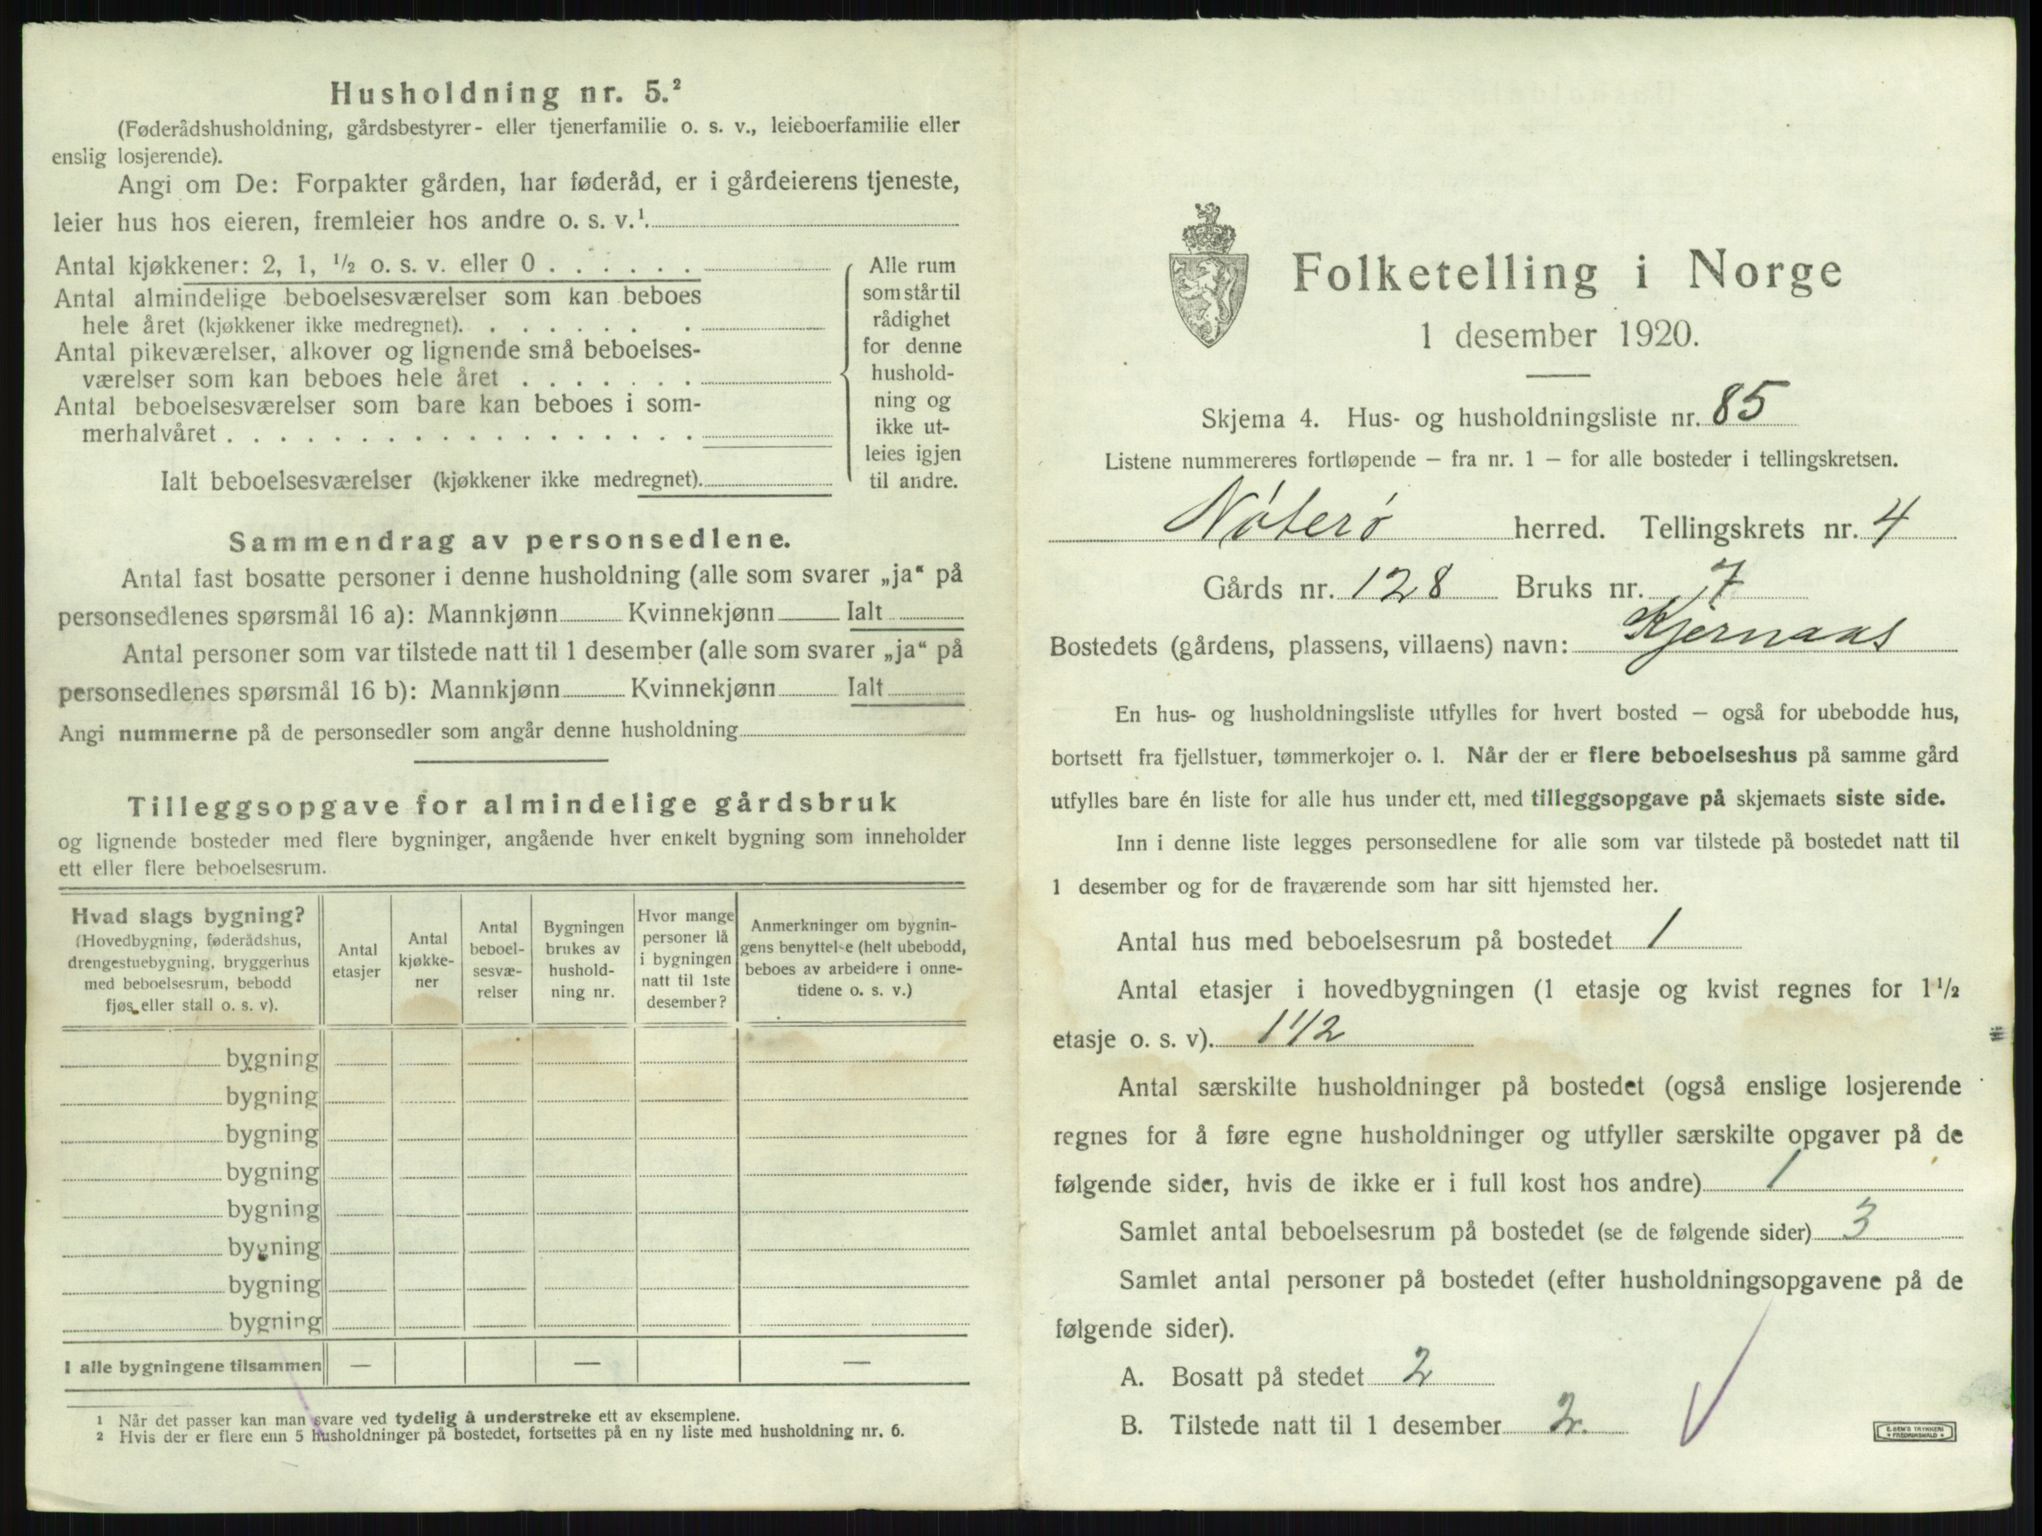 Husholdning nr. 5.²
(Føderådshusholdning, gårdsbestyrer- eller tjenerfamilie o. s. v., leieboerfamilie eller
enslig losjerende).
Angi om De: Forpakter gården, har føderåd, er i gårdeierens tjeneste,
leier hus hos eieren, fremleier hos andre o. s. v.¹.
Antal kjøkkener: 2, 1, ½ o. s. v. eller 0 . . . . . .
Antal almindelige beboelsesværelser som kan beboes
hele året (kjøkkener ikke medregnet). . . . . . . .
Antal pikeværelser, alkover og lignende små beboelses-
værelser som kan beboes hele året . . . . . . .
Antal beboelsesværelser som bare kan beboes i som-
merhalvåret . . . . . . . . . . . . . . . . . .
Ialt beboelsesværelser (kjøkkener ikke medregnet).
Alle rum
som står til
rådighet
for denne
hushold-
ning og
ikke ut-
leies igjen
til andre.
Sammendrag av personsedlene.
Antal fast bosatte personer i denne husholdning (alle som svarer „ja“ på
personsedlenes spørsmål 16 a): Mannkjønn Kvinnekjønn Ialt
Antal personer som var tilstede natt til 1 desember (alle som svarer „ja“ på
personsedlenes spørsmål 16 b): Mannkjønn Kvinnekjønn Ialt
Angi nummerne på de personsedler som angår denne husholdning
Tilleggsopgave for almindelige gårdsbruk
og lignende bosteder med flere bygninger, angående hver enkelt bygning som inneholder
ett eller flere beboelsesrum.
Hvad slags bygning?
(Hovedbygning, føderådshus,
drengestuebygning, bryggerhus
med beboelsesrum, bebodd
fjøs eller stall o. s. v).
Antal
etasjer
Antal
kjøkke-
ner
Antal
beboel-
sesvæ-
relser
Bygningen
brukes av
hushold-
ning nr.
Hvor mange
personer lå
i bygningen
natt til 1ste
desember?
Anmerkninger om bygnin-
gens benyttelse (helt ubebodd,
beboes av arbeidere i onne-
tidene o. s. v.)
bygning
bygning
bygning
bygning
bygning
bygning
bygning
bygning
I alle bygningene tilsammen — — —
¹ Når det passer kan man svare ved tydelig å understreke ett av eksemplene.
² Hvis der er flere enn 5 husholdninger på bostedet, fortsettes på en ny liste med husholdning nr. 6.
Folketelling i Norge
1 desember 1920.
Skjema 4. Hus- og husholdningsliste nr. 85
Listene nummereres fortløpende — fra nr. 1 — for alle bosteder i tellingskretsen.
Nøterø herred. Tellingskrets nr. 4
Gårds nr. 128 Bruks nr. 7
Bostedets (gårdens, plassens, villaens) navn: Kjernaas
En hus- og husholdningsliste utfylles for hvert bosted — også for ubebodde hus,
bortsett fra fjellstuer, tømmerkojer o. l. Når der er flere beboelseshus på samme gård
utfylles bare én liste for alle hus under ett, med tilleggsopgave på skjemaets siste side.
Inn i denne liste legges personsedlene for alle som var tilstede på bostedet natt til
1 desember og for de fraværende som har sitt hjemsted her.
Antal hus med beboelsesrum på bostedet 1
Antal etasjer i hovedbygningen (1 etasje og kvist regnes for 1½
etasje o. s. v). 1 1/2
Antal særskilte husholdninger på bostedet (også enslige losjerende
regnes for å føre egne husholdninger og utfyller særskilte opgaver på de
følgende sider, hvis de ikke er i full kost hos andre) 1
Samlet antal beboelsesrum på bostedet (se de følgende sider) 3
Samlet antal personer på bostedet (efter husholdningsopgavene på de
følgende sider).
A. Bosatt på stedet 2
B. Tilstede natt til 1 desember 2
E. SEM'S TRYKKERI
FREDRIKSHALD